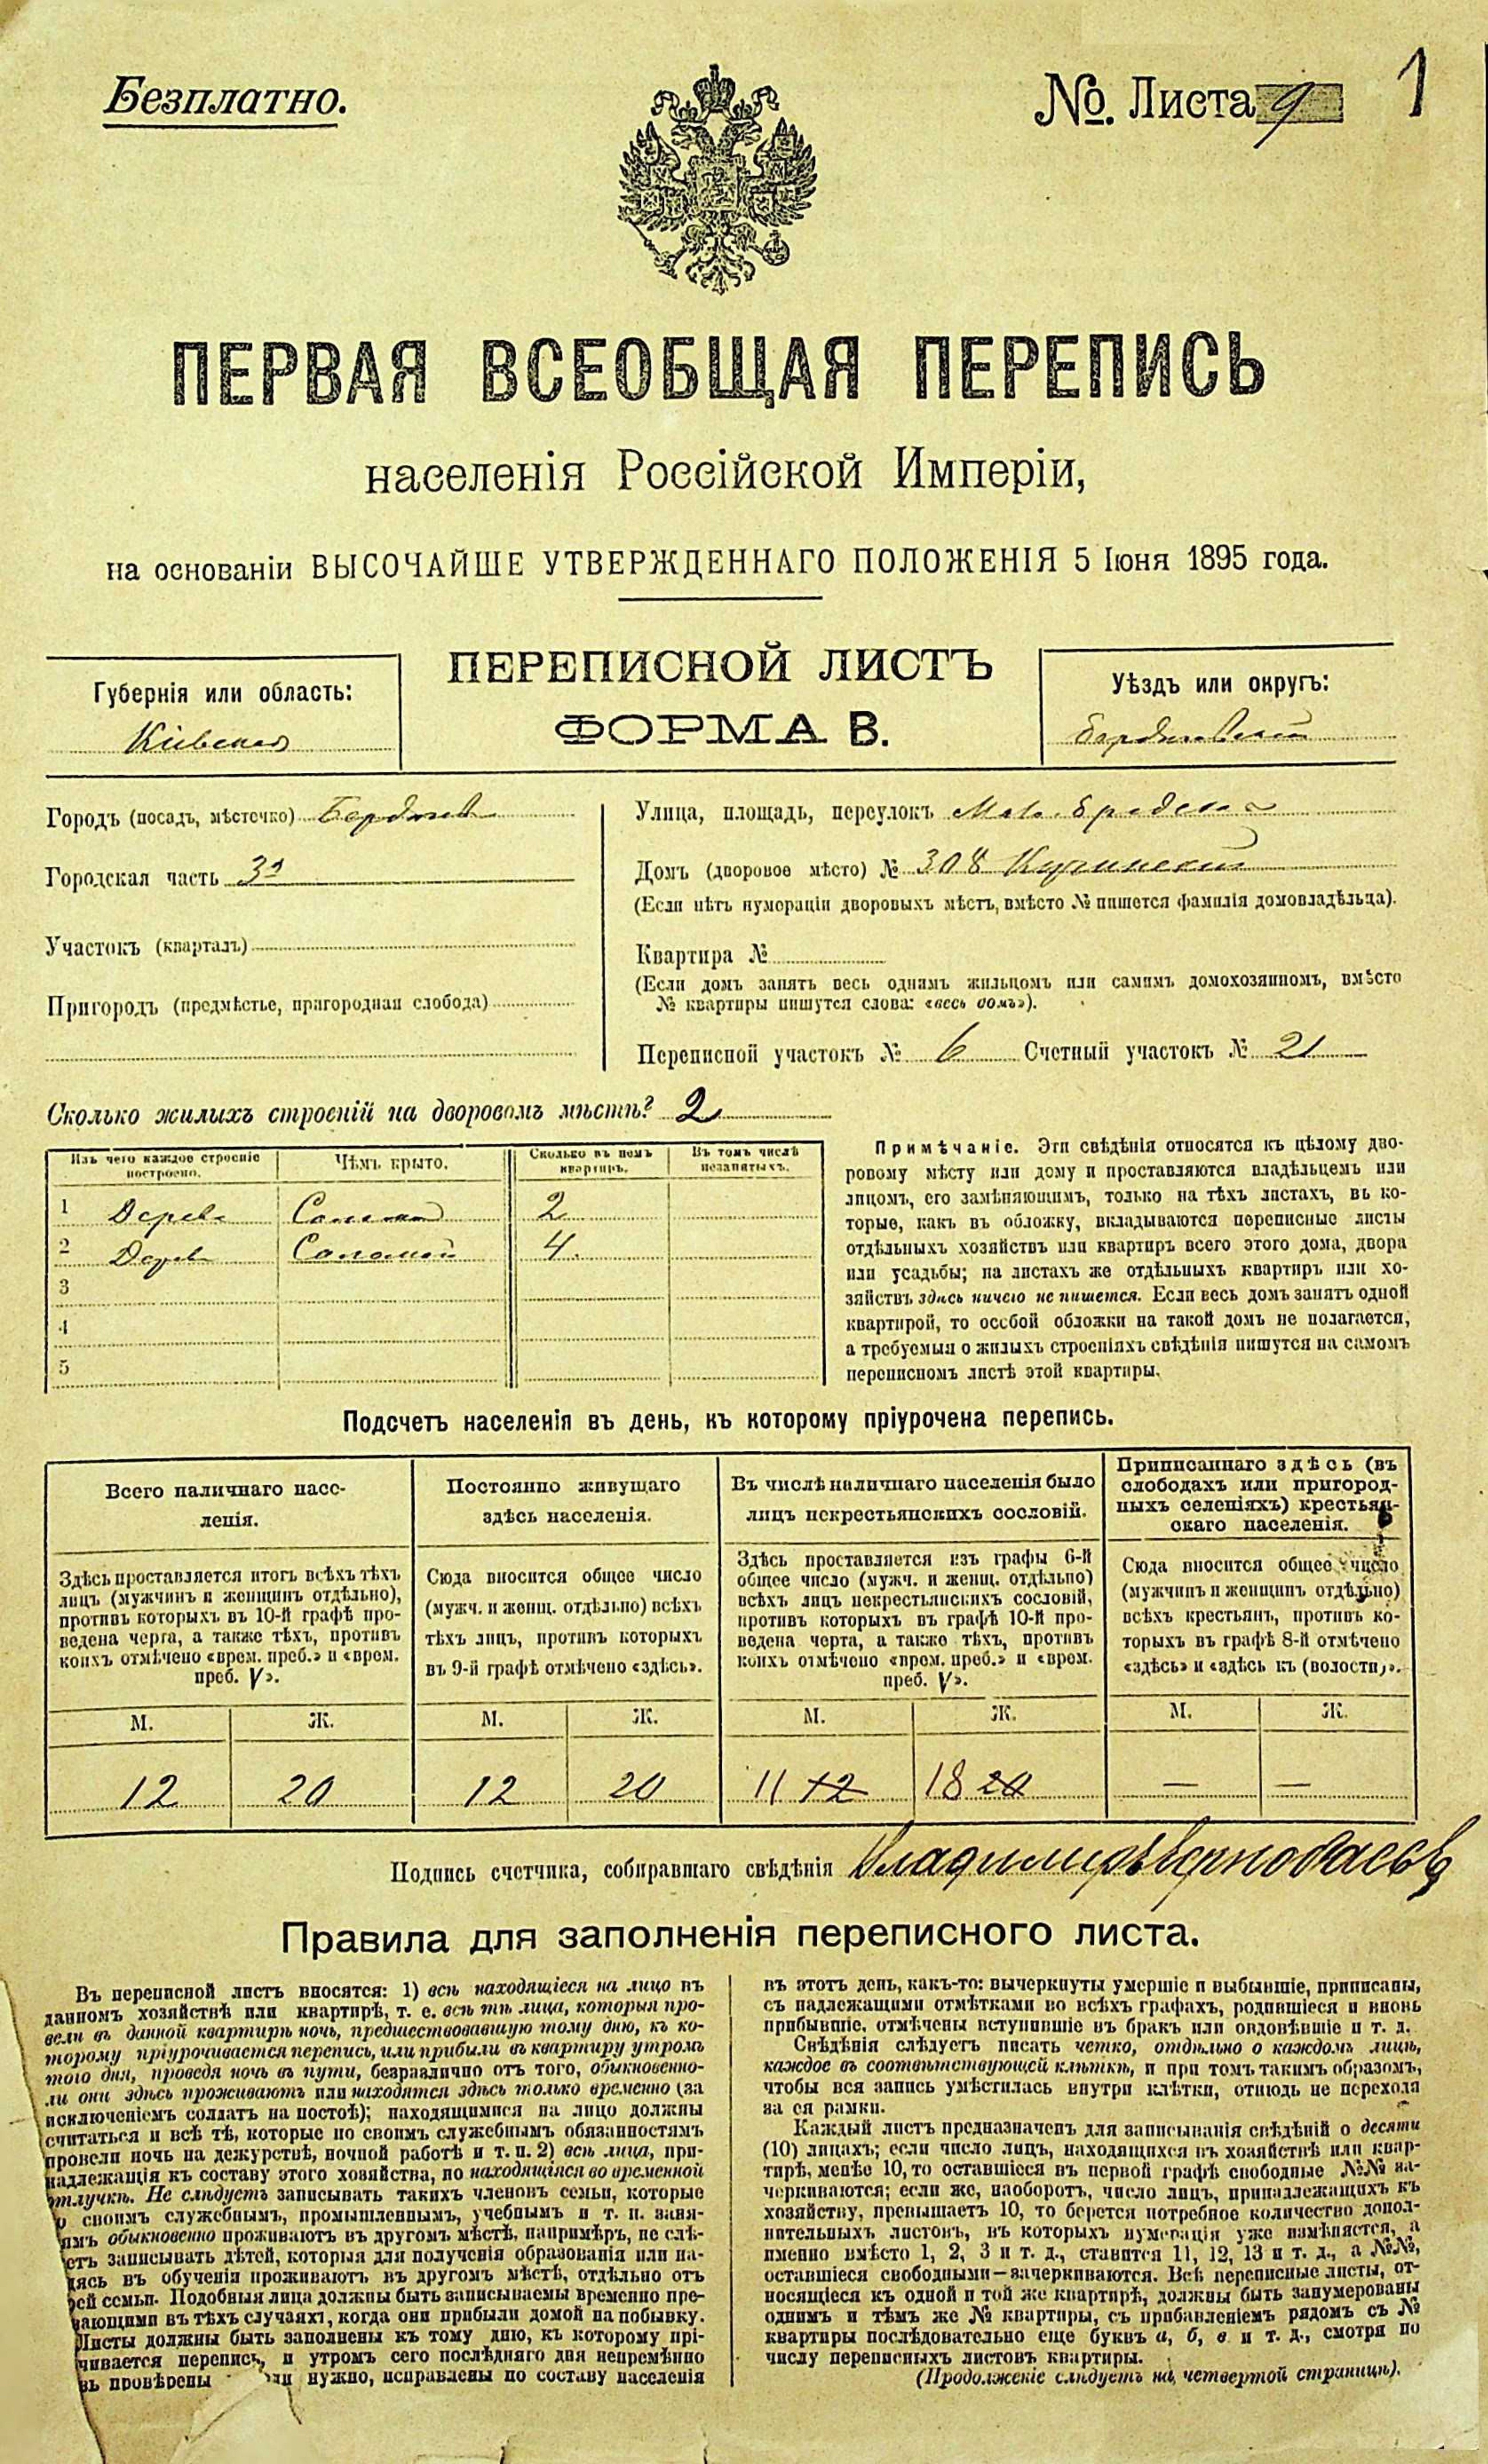 Безплатно.
№ Листа 9
1
ПЕРВАЯ ВСЕОБЩАЯ ПЕРЕПИСЬ
населенія Россійской Имперіи,
на основаніи ВЫСОЧАЙШЕ УТВЕРЖДЕННАГО ПОЛОЖЕНІЯ 5 Іюня 1895 года.
Губернія или область:
Кіевская
ПЕРЕПИСНОЙ ЛИСТЪ
ФОРМА В.
Уѣздъ или округъ:
Бердичевскій
Городъ (посадъ, мѣстечко) Бердичев
Городская часть 3я
Участокъ (кварталъ)
Пригородъ (предмѣстье, пригородная слобода)
Улица, площадь, переулокъ
Домъ (дворовое мѣсто) № 308
(Если нѣтъ нумераціи дворовыхъ мѣстъ, вмѣсто № пишется фамилія домовладѣльца).
Квартира №
(Если домъ занятъ весь однимъ жильцомъ или самимъ домохозяиномъ, вмѣсто
№ квартиры пишутся слова: «весь домъ»).
Переписной участокъ № 6 Счетный участокъ № 21
Сколько жилыхъ строеній на дворовомъ мѣстѣ? 2
Изъ чего каждое строеніе
построено.
Чѣмъ крыто.
Сколько въ немъ
квартиръ.
Въ томъ числѣ
незанятыхъ.
1 Дерев Соломой 2
2 Дерев Соломой 4.
3
4
5
Примѣчаніе. Эти свѣдѣнія относятся къ цѣлому дво-
ровому мѣсту или дому и проставляются владѣльцемъ или
лицомъ, его замѣняющимъ, только на тѣхъ листахъ, въ ко-
торые, какъ въ обложку, вкладываются переписные листы
отдѣльныхъ хозяйствъ или квартиръ всего этого дома, двора
или усадьбы; на листахъ же отдѣльныхъ квартиръ или хо-
зяйствъ здѣсь ничего не пишется. Если весь домъ занятъ одной
квартирой, то особой обложки на такой домъ не полагается,
а требуемыя о жилыхъ строеніяхъ свѣдѣнія пишутся на самомъ
переписномъ листѣ этой квартиры.
Подсчетъ населенія въ день, къ которому пріурочена перепись.
Всего наличнаго насе-
ленія.
Здѣсь проставляется итогъ всѣхъ тѣхъ
лицъ (мужчинъ и женщинъ отдѣльно),
противъ которыхъ въ 10-й графѣ про-
ведена черта, а также тѣхъ, противъ
коихъ отмѣчено «врем. преб.» и «врем.
преб. V».
Постоянно живущаго
здѣсь населенія.
Сюда вносится общее число
(мужч. и женщ. отдѣльно) всѣхъ
тѣхъ лицъ, противъ которыхъ
въ 9-й графѣ отмѣчено «здѣсь».
Въ числѣ наличнаго населенія было
лицъ некрестьянскихъ сословій.
Здѣсь проставляется изъ графы 6-й
общее число (мужч. и женщ. отдѣльно)
всѣхъ лицъ некрестьянскихъ сословій,
противъ которыхъ въ графѣ 10-й про-
ведена черта, а также тѣхъ, противъ
коихъ отмѣчено «врем. преб.» и «врем.
преб. V».
Приписаннаго здѣсь (въ
слободахъ или пригород-
ныхъ селеніяхъ) крестьян-
скаго населенія.
Сюда вносится общее число
(мужчинъ и женщинъ отдѣльно)
всѣхъ крестьянъ, противъ ко-
торыхъ въ графѣ 8-й отмѣчено
«здѣсь» и «здѣсь къ (волости)».
М. Ж. М. Ж. М. Ж. М. Ж.
12 20 12 20 11 12 18 20 — —
Подпись счетчика, собиравшаго свѣдѣнія Владимиръ
Правила для заполненія переписного листа.
Въ переписной листъ вносятся: 1) всѣ находящіеся на лицо въ
данномъ хозяйствѣ или квартирѣ, т. е. всѣ тѣ лица, которыя про-
вели въ данной квартирѣ ночь, предшествовавшую тому дню, къ ко-
торому пріурочивается перепись, или прибыли въ квартиру утромъ
того дня, проведя ночь въ пути, безразлично отъ того, обыкновенно-
ли они здѣсь проживаютъ или находятся здѣсь только временно (за
исключеніемъ солдатъ на постоѣ); находящимися на лицо должны
считаться и всѣ тѣ, которые по своимъ служебнымъ обязанностямъ
провели ночь на дежурствѣ, ночной работѣ и т. п. 2) всѣ лица, при-
надлежащія къ составу этого хозяйства, но находящіяся во временной
отлучкѣ. Не слѣдуетъ записывать такихъ членовъ семьи, которые
о своимъ служебнымъ, промышленнымъ, учебнымъ и т. п. заня-
ямъ обыкновенно проживаютъ въ другомъ мѣстѣ, напримѣръ, не слѣ-
етъ записывать дѣтей, которыя для полученія образованія или на-
дясь въ обученіи проживаютъ въ другомъ мѣстѣ, отдѣльно отъ
оей семьи. Подобныя лица должны быть записываемы временно пре-
вающими въ тѣхъ случаяхъ, когда они прибыли домой на побывку.
Листы должны быть заполнены къ тому дню, къ которому прі-
чивается перепись, и утромъ сего послѣдняго дня непремѣнно
вь провѣрены нужно, исправлены по составу населенія
въ этотъ день, какъ-то: вычеркнуты умершіе и выбывшіе, приписаны,
съ надлежащими отмѣтками во всѣхъ графахъ, родившіеся и вновь
прибывшіе, отмѣчены вступившіе въ бракъ или овдовѣвшіе и т. д.
Свѣдѣнія слѣдуетъ писать четко, отдѣльно о каждомъ лицѣ,
каждое въ соотвѣтствующей клѣткѣ, и при томъ такимъ образомъ,
чтобы вся запись умѣстилась внутри клѣтки, отнюдь не переходя
за ея рамки.
Каждый листъ предназначенъ для записыванія свѣдѣній о десяти
(10) лицахъ; если число лицъ, находящихся въ хозяйствѣ или квар-
тирѣ, менѣе 10, то оставшіеся въ первой графѣ свободные №№ за-
черкиваются; если же, наоборотъ, число лицъ, принадлежащихъ къ
хозяйству, превышаетъ 10, то берется потребное количество допол-
нительныхъ листовъ, въ которыхъ нумерація уже измѣняется, а
именно вмѣсто 1, 2, 3 и т. д., ставится 11, 12, 13 и т. д., а №№,
оставшіеся свободными—зачеркиваются. Всѣ переписные листы, от-
носящіеся къ одной и той же квартирѣ, должны быть занумерованы
однимъ и тѣмъ же № квартиры, съ прибавленіемъ рядомъ съ №
квартиры послѣдовательно еще буквъ а, б, в и т. д., смотря по
числу переписныхъ листовъ квартиры.
(Продолженіе слѣдуетъ на четвертой страницѣ).